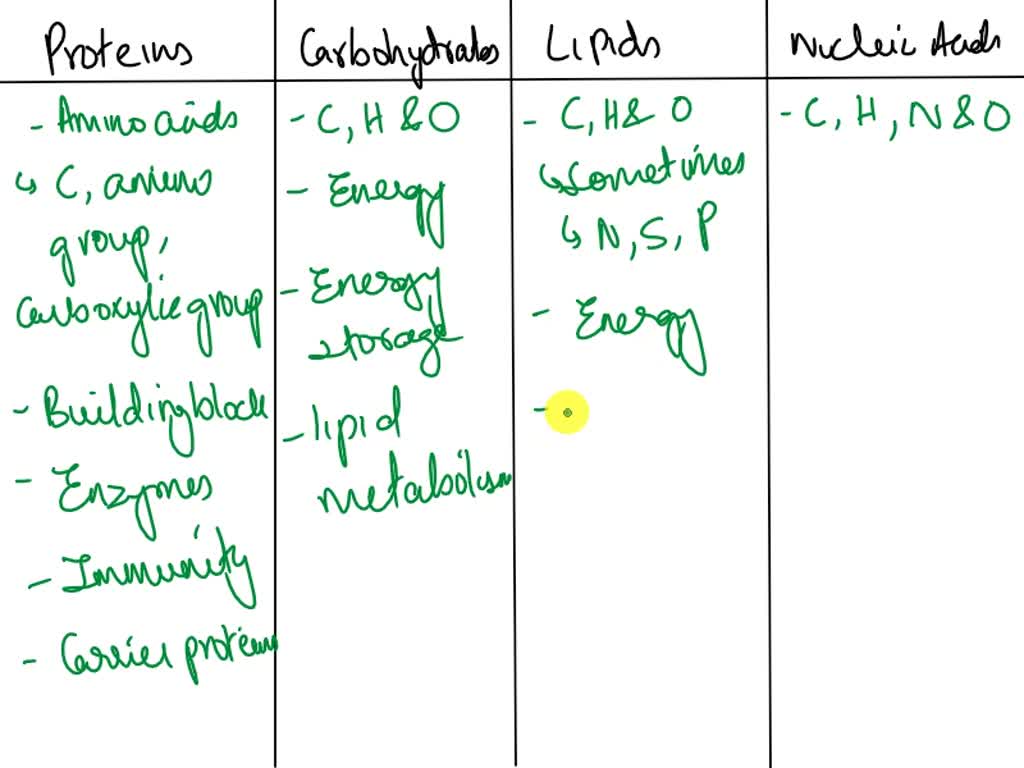 Proteins
- Amino acids
↳ C, amino
group,
Carboxylic group
- Building block
- Enzymes
- Immunity
- Carrier proteins
Carbohydrates
- C, H & O
- Energy
- Energy
storage
- lipid
metabolism
Lipids
- C, H & O
↳ Sometimes
↳ N, S, P
- Energy
-
Nucleic Acids
- C, H, N & O